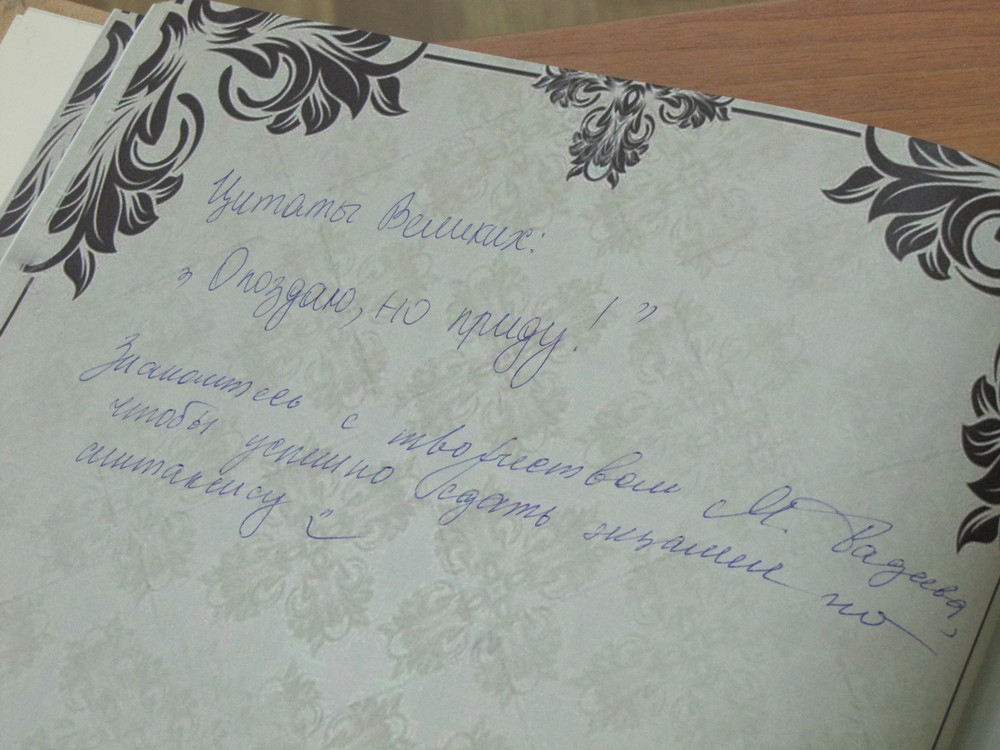 Цитаты Великих:
„Опоздаю, но приду!”
Знакомтесь с творчеством М.
чтобы успешно сдать экзамен по
синтаксису